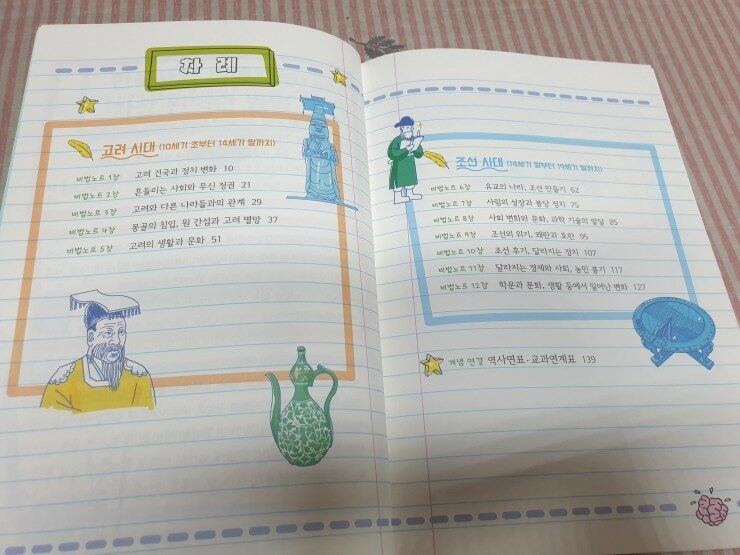 차 례
고려 시대 (10세기 초부터 14세기 말까지)
비법노트 1장 고려 건국과 정치 변화 10
비법노트 2장 흔들리는 사회와 무신 정권 21
비법노트 3장 고려와 다른 나라들과의 관계 29
비법노트 4장 몽골의 침입, 원 간섭과 고려 멸망 37
비법노트 5장 고려의 생활과 문화 51
조선 시대 (14세기 말부터 19세기 말까지)
비법노트 6장 유교의 나라, 조선 만들기 62
비법노트 7장 사림의 성장과 붕당 정치 75
비법노트 8장 사회 변화와 문화, 과학 기술의 발달 85
비법노트 9장 조선의 위기, 왜란과 호란 95
비법노트 10장 조선 후기, 달라지는 정치 107
비법노트 11장 달라지는 경제와 사회, 농민 봉기 117
비법노트 12장 학문과 문화, 생활 등에서 일어난 변화 127
개념 연결 역사연표·교과연계표 139